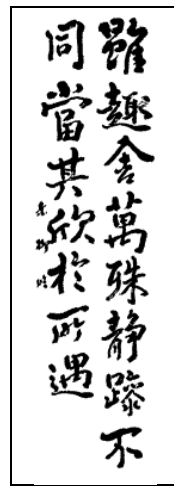 雖趣舍萬殊静躁不
同當其欣於所遇